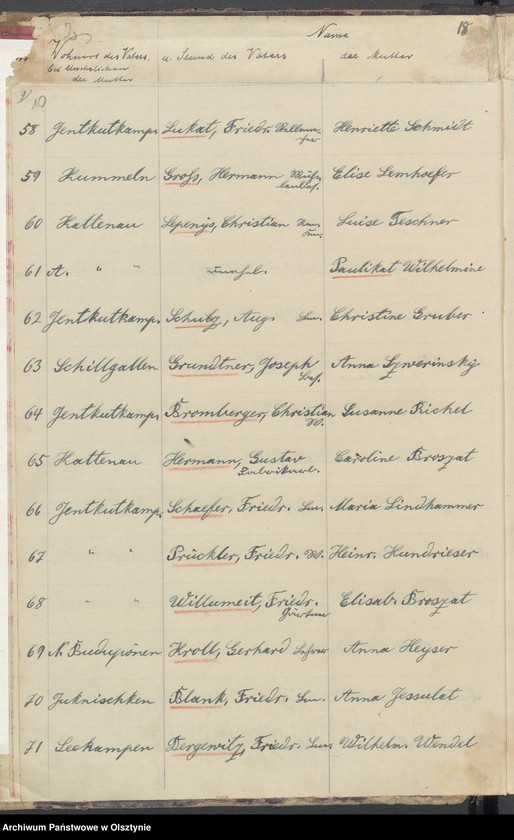 Name 18
Wohnort des Vaters, u. Stand des Vaters der Mutter
bei Unehelichen
der Mutter
10
58 Jentkutkamp. Lukat, Friedr. Henriette Schmidt
59 Kummeln Groß, Hermann Elise Lemhoefer
60 Kattenau Lepenys, Christian Luise Teschner
61 A. " " Paulikat Wilhelmine
62 Jentkutkamp. Schulz, Aug. Christine Gruber
63 Schillgallen Grundtner, Joseph Anna Szwerinsky
64 Jentkutkamp. Bromberger, Christian Susanne Richel
W.
65 Kattenau Hermann, Gustav Caroline Broszat
66 Jentkutkamp. Schaefer, Friedr. Maria Lindhammer
67 " " Prückler, Friedr. W. Heinr. Hundrieser
68 " " Willumeit, Friedr. Elisab. Broszat
69 N. Budupönen Kroll, Gerhard Anna Heyser
70 Juknischken Blank, Friedr. Anna Jessulat
71 Seekampen Bergewitz, Friedr. Wilhelm. Wendel
Archiwum Państwowe w Olsztynie